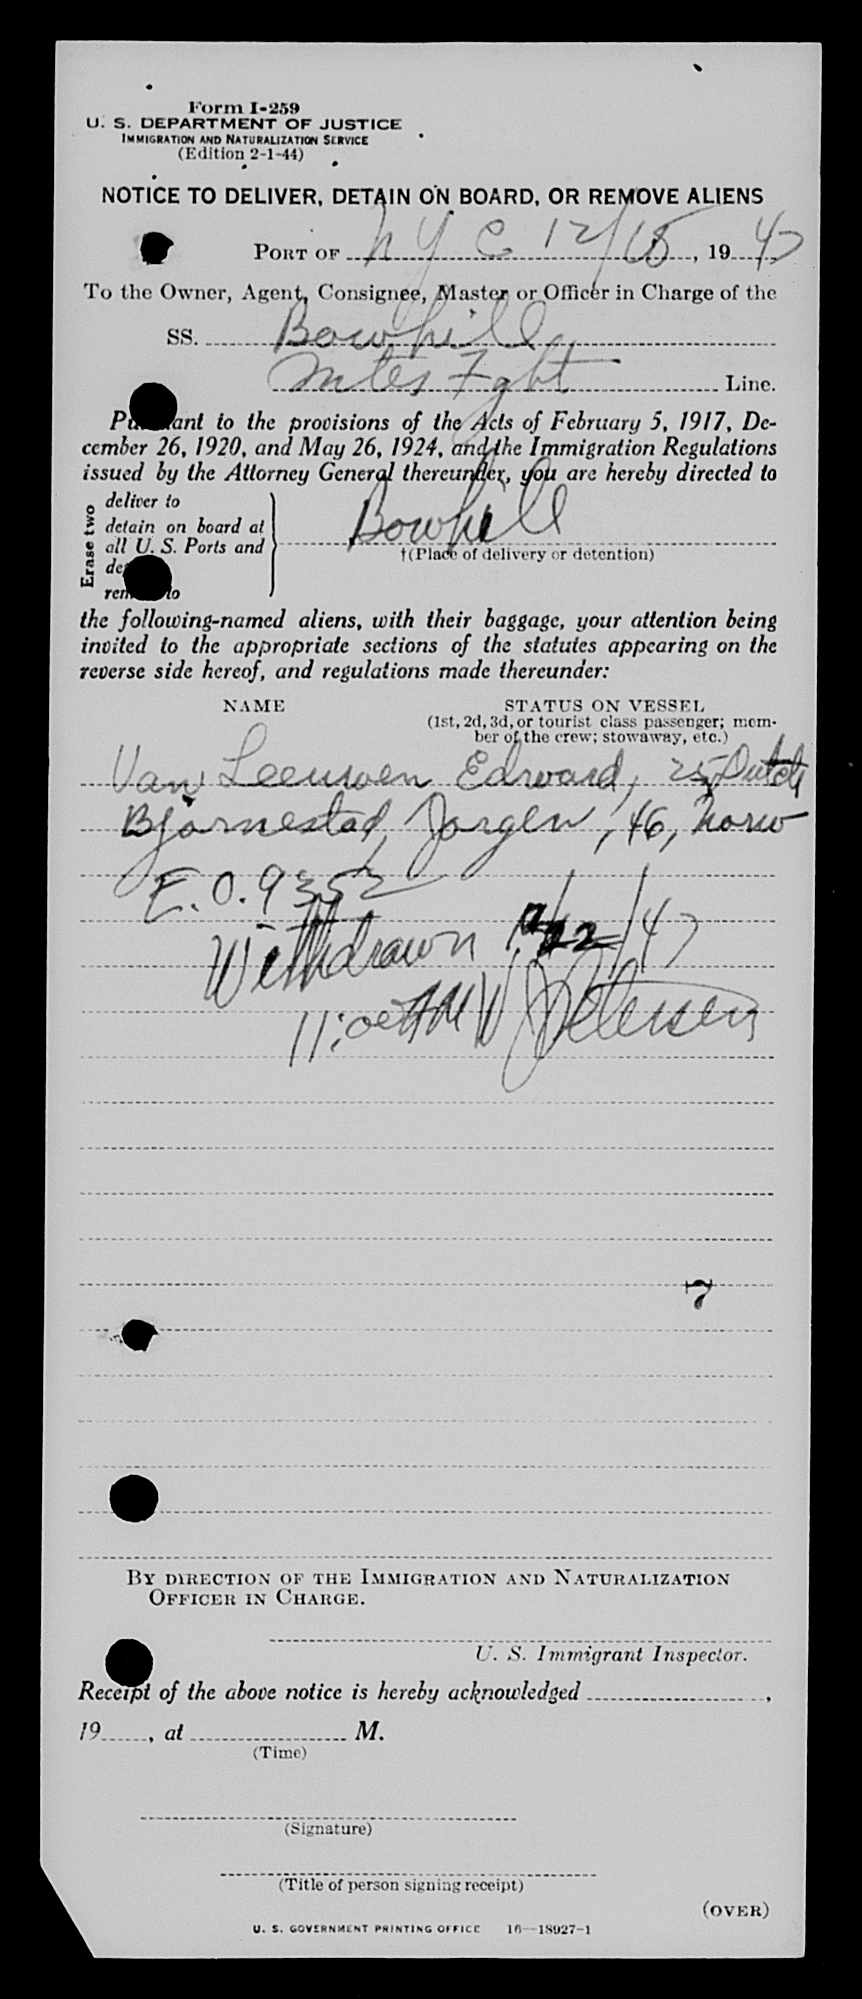 Form I-259
U. S. DEPARTMENT OF JUSTICE
IMMIGRATION AND NATURALIZATION SERVICE
(Edition 2-1-44)
NOTICE TO DELIVER, DETAIN ON BOARD, OR REMOVE ALIENS
PORT OF N Y C 12/18, 1947
To the Owner, Agent, Consignee, Master or Officer in Charge of the
SS. Bowhill
Line.
Pursuant to the provisions of the Acts of February 5, 1917, De-
cember 26, 1920, and May 26, 1924, and the Immigration Regulations
issued by the Attorney General thereunder, you are hereby directed to
Erase two
deliver to
detain on board at
all U. S. Ports and
de
remove to
Bowhill
†(Place of delivery or detention)
the following-named aliens, with their baggage, your attention being
invited to the appropriate sections of the statutes appearing on the
reverse side hereof, and regulations made thereunder:
NAME STATUS ON VESSEL
(1st, 2d, 3d, or tourist class passenger; mem-
ber of the crew; stowaway, etc.)
Van Leeuwen Edward, 25, Dutch
Bjornestad, Jorgen, 46, Norw
E.O. 9352
Withdrawn 12/22/47
11:00 AM Petersen
7
BY DIRECTION OF THE IMMIGRATION AND NATURALIZATION
OFFICER IN CHARGE.
U. S. Immigrant Inspector.
Receipt of the above notice is hereby acknowledged ,
19 , at M.
(Time)
(Signature)
(Title of person signing receipt)
(OVER)
U. S. GOVERNMENT PRINTING OFFICE 16—18927-1